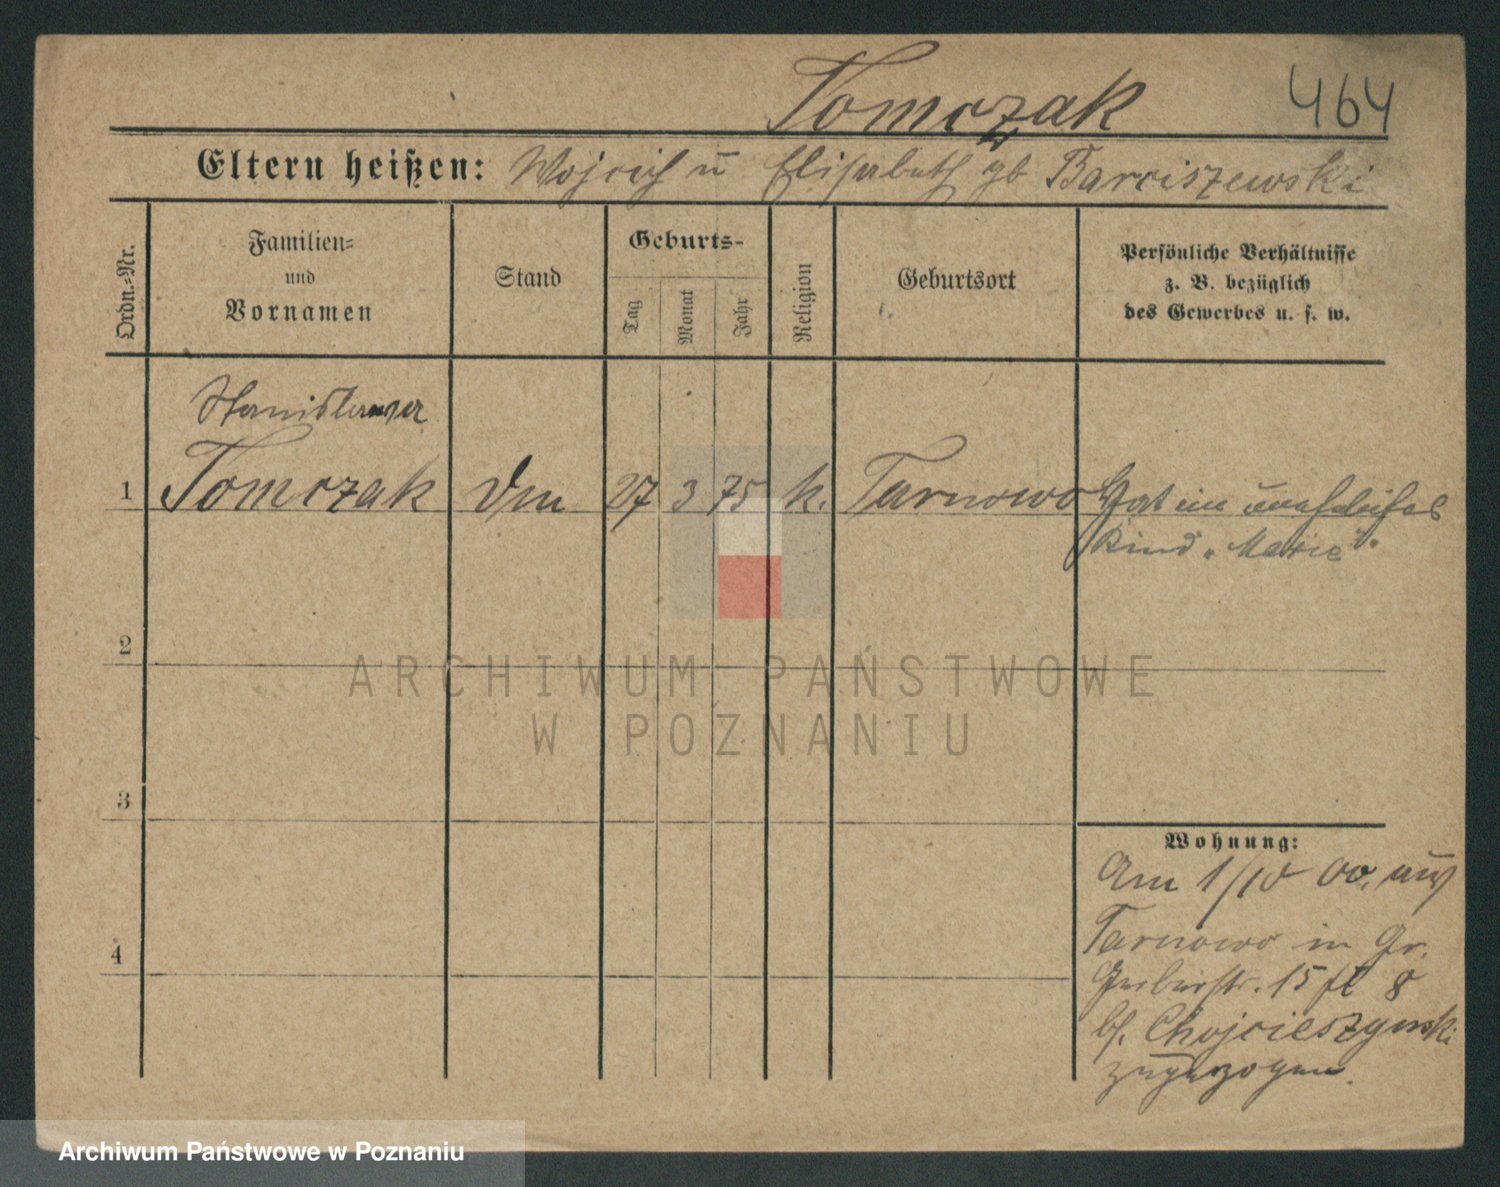 Tomczak 464
Eltern heißen: Wojcich u Elisabeth gb Barciszewski
Ordn.-Nr.
Familien-
und
Vornamen
Stand
Geburts-
Tag
Monat
Jahr
Religion
Geburtsort
Persönliche Verhältnisse
z. B. bezüglich
des Gewerbes u. s. w.
Stanislawa
1 Tomczak 27 3 75 k. Tarnowo Hat ein uneheliches
Kind „Marie"
2
3
4
Wohnung:
Am 1/10 00. aus
Tarnowo in Gr.
Gerberstr. 15 8
bf. Chojcieszynski
zugezogen.
ARCHIWUM PAŃSTWOWE
W POZNANIU
Archiwum Państwowe w Poznaniu